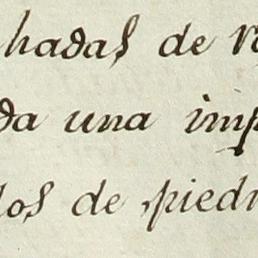 hadas de r
da una imp
los de piedr